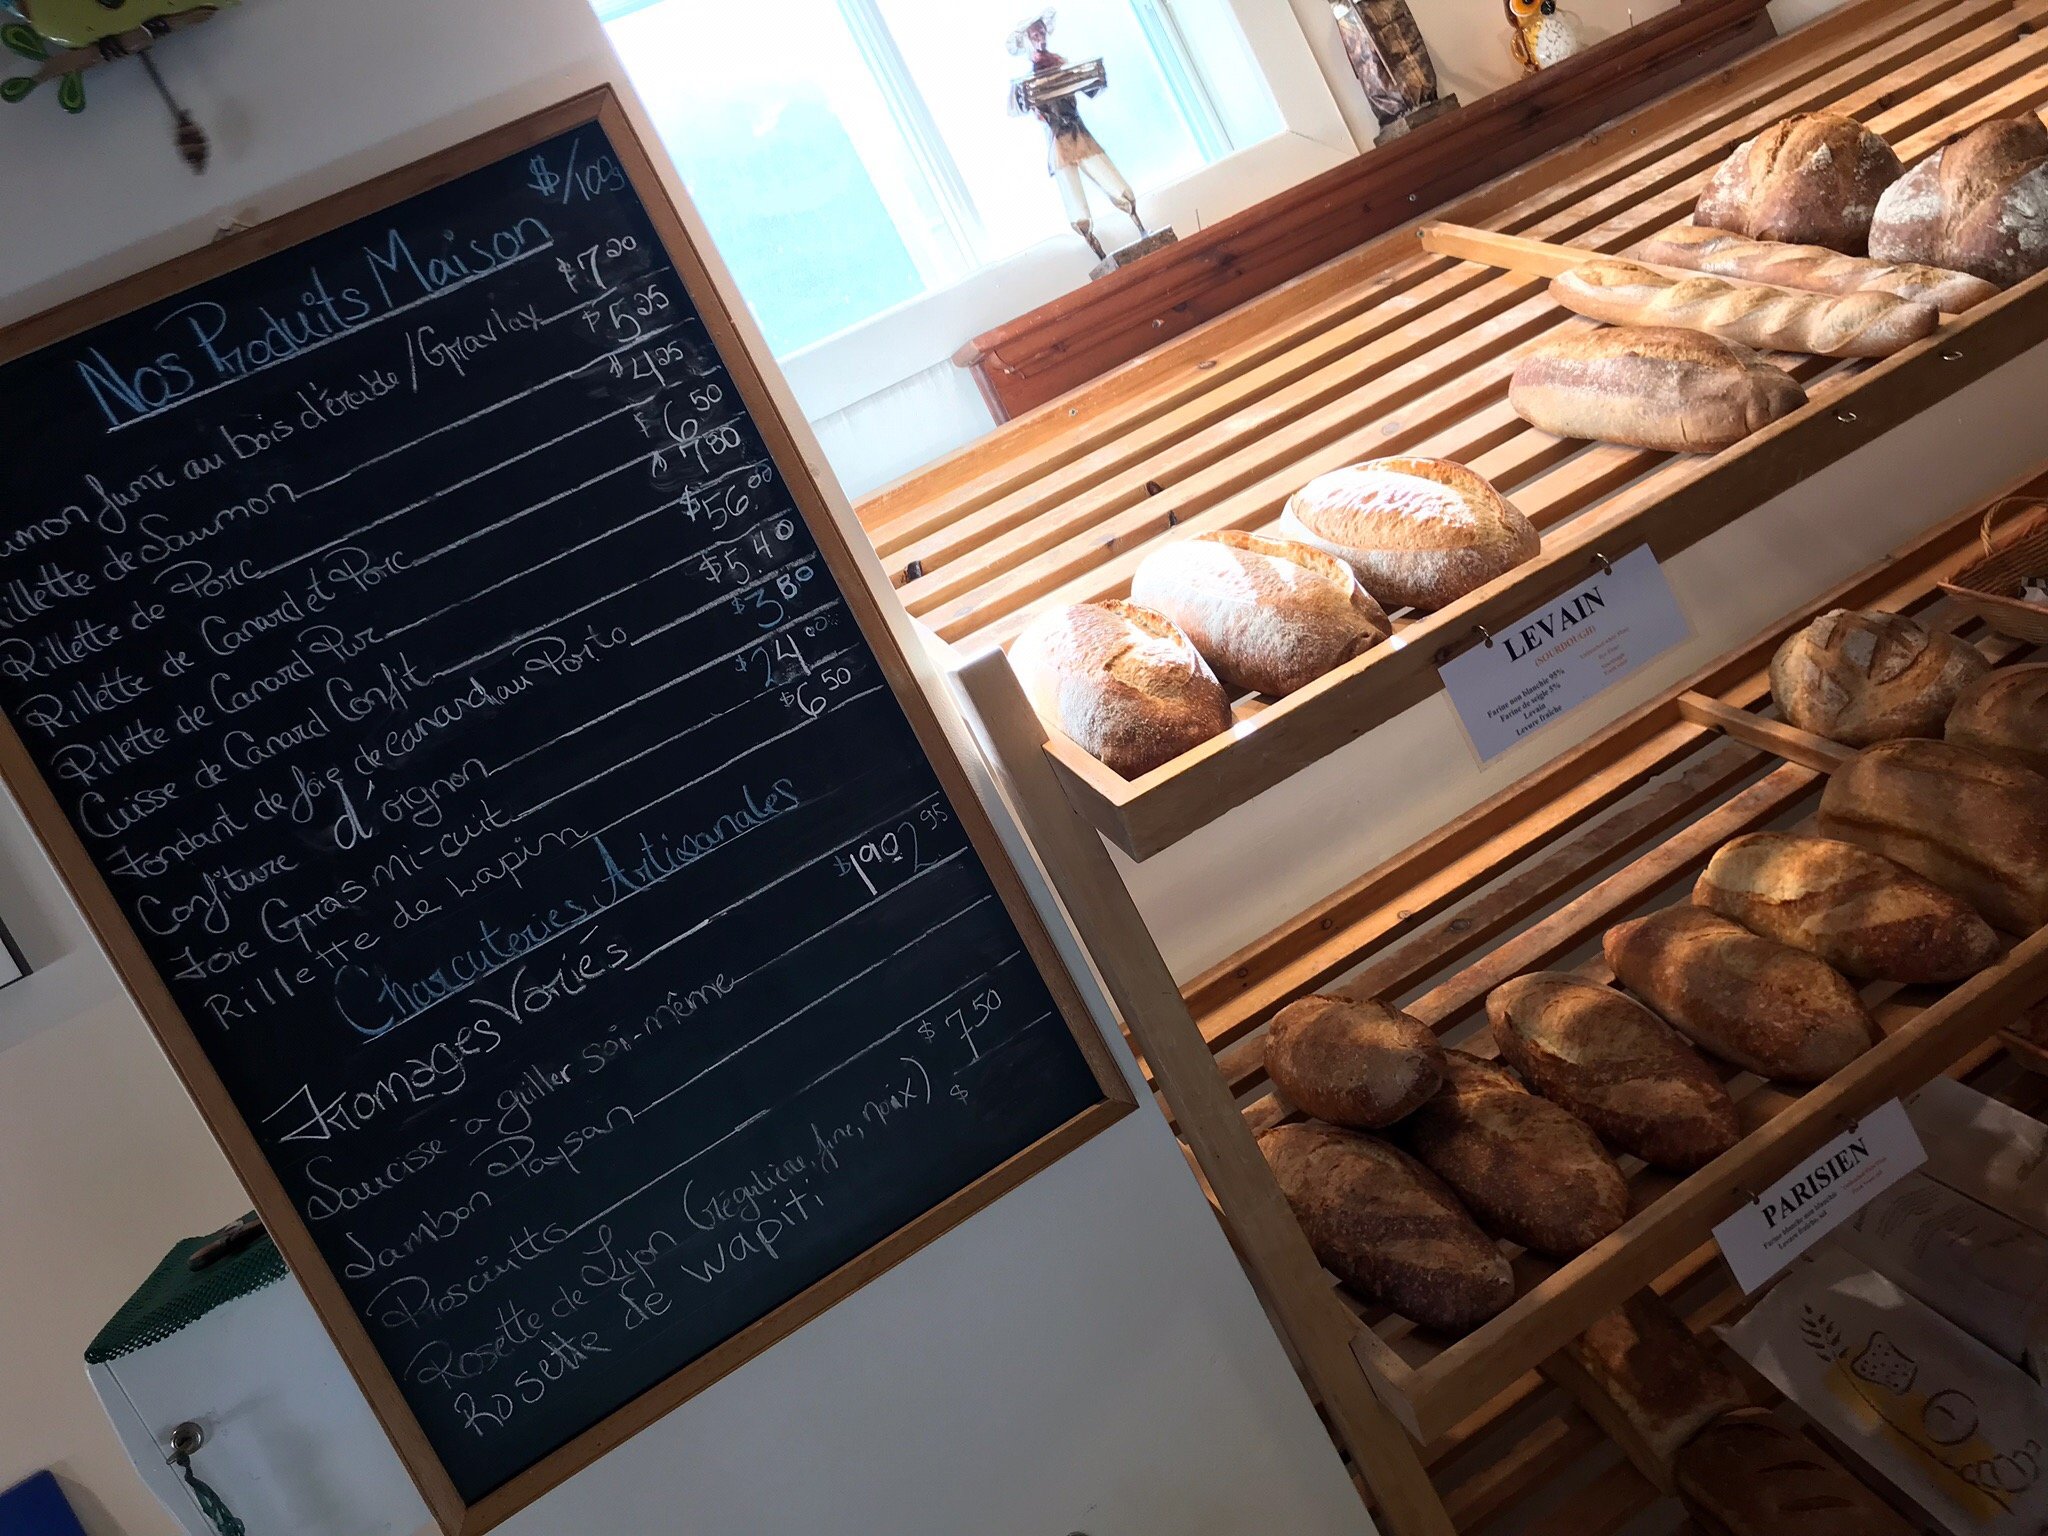 $/100g
Nos Produits Maison
umon fumé au bois d'érable/Gravlax $7.20
illette de Saumon $5.25
Rillette de Porc $4.25
Rillette de Canard et Porc $6.50
Rillette de Canard Pur $7.80
Cuisse de Canard Confit $56.00
Fondant de foie de canard au Porto $5.40
Confiture d'oignon $3.80
Foie Gras mi-cuit $24.00
Rillette de Lapin $6.50
Charcuteries Artisanales
Fromages Variés
Saucisse à griller soi-même
Jambon Paysan
Prosciutto
Rosette de Lyon (régulière, fine, noix) $7.50
Rosette de wapiti $
LEVAIN
(SOURDOUGH)
Farine non blanchie 95%
Farine de seigle 5%
Levain
Levure fraîche
PARISIEN
Farine blanche non blanchie
Levure fraîche, sel